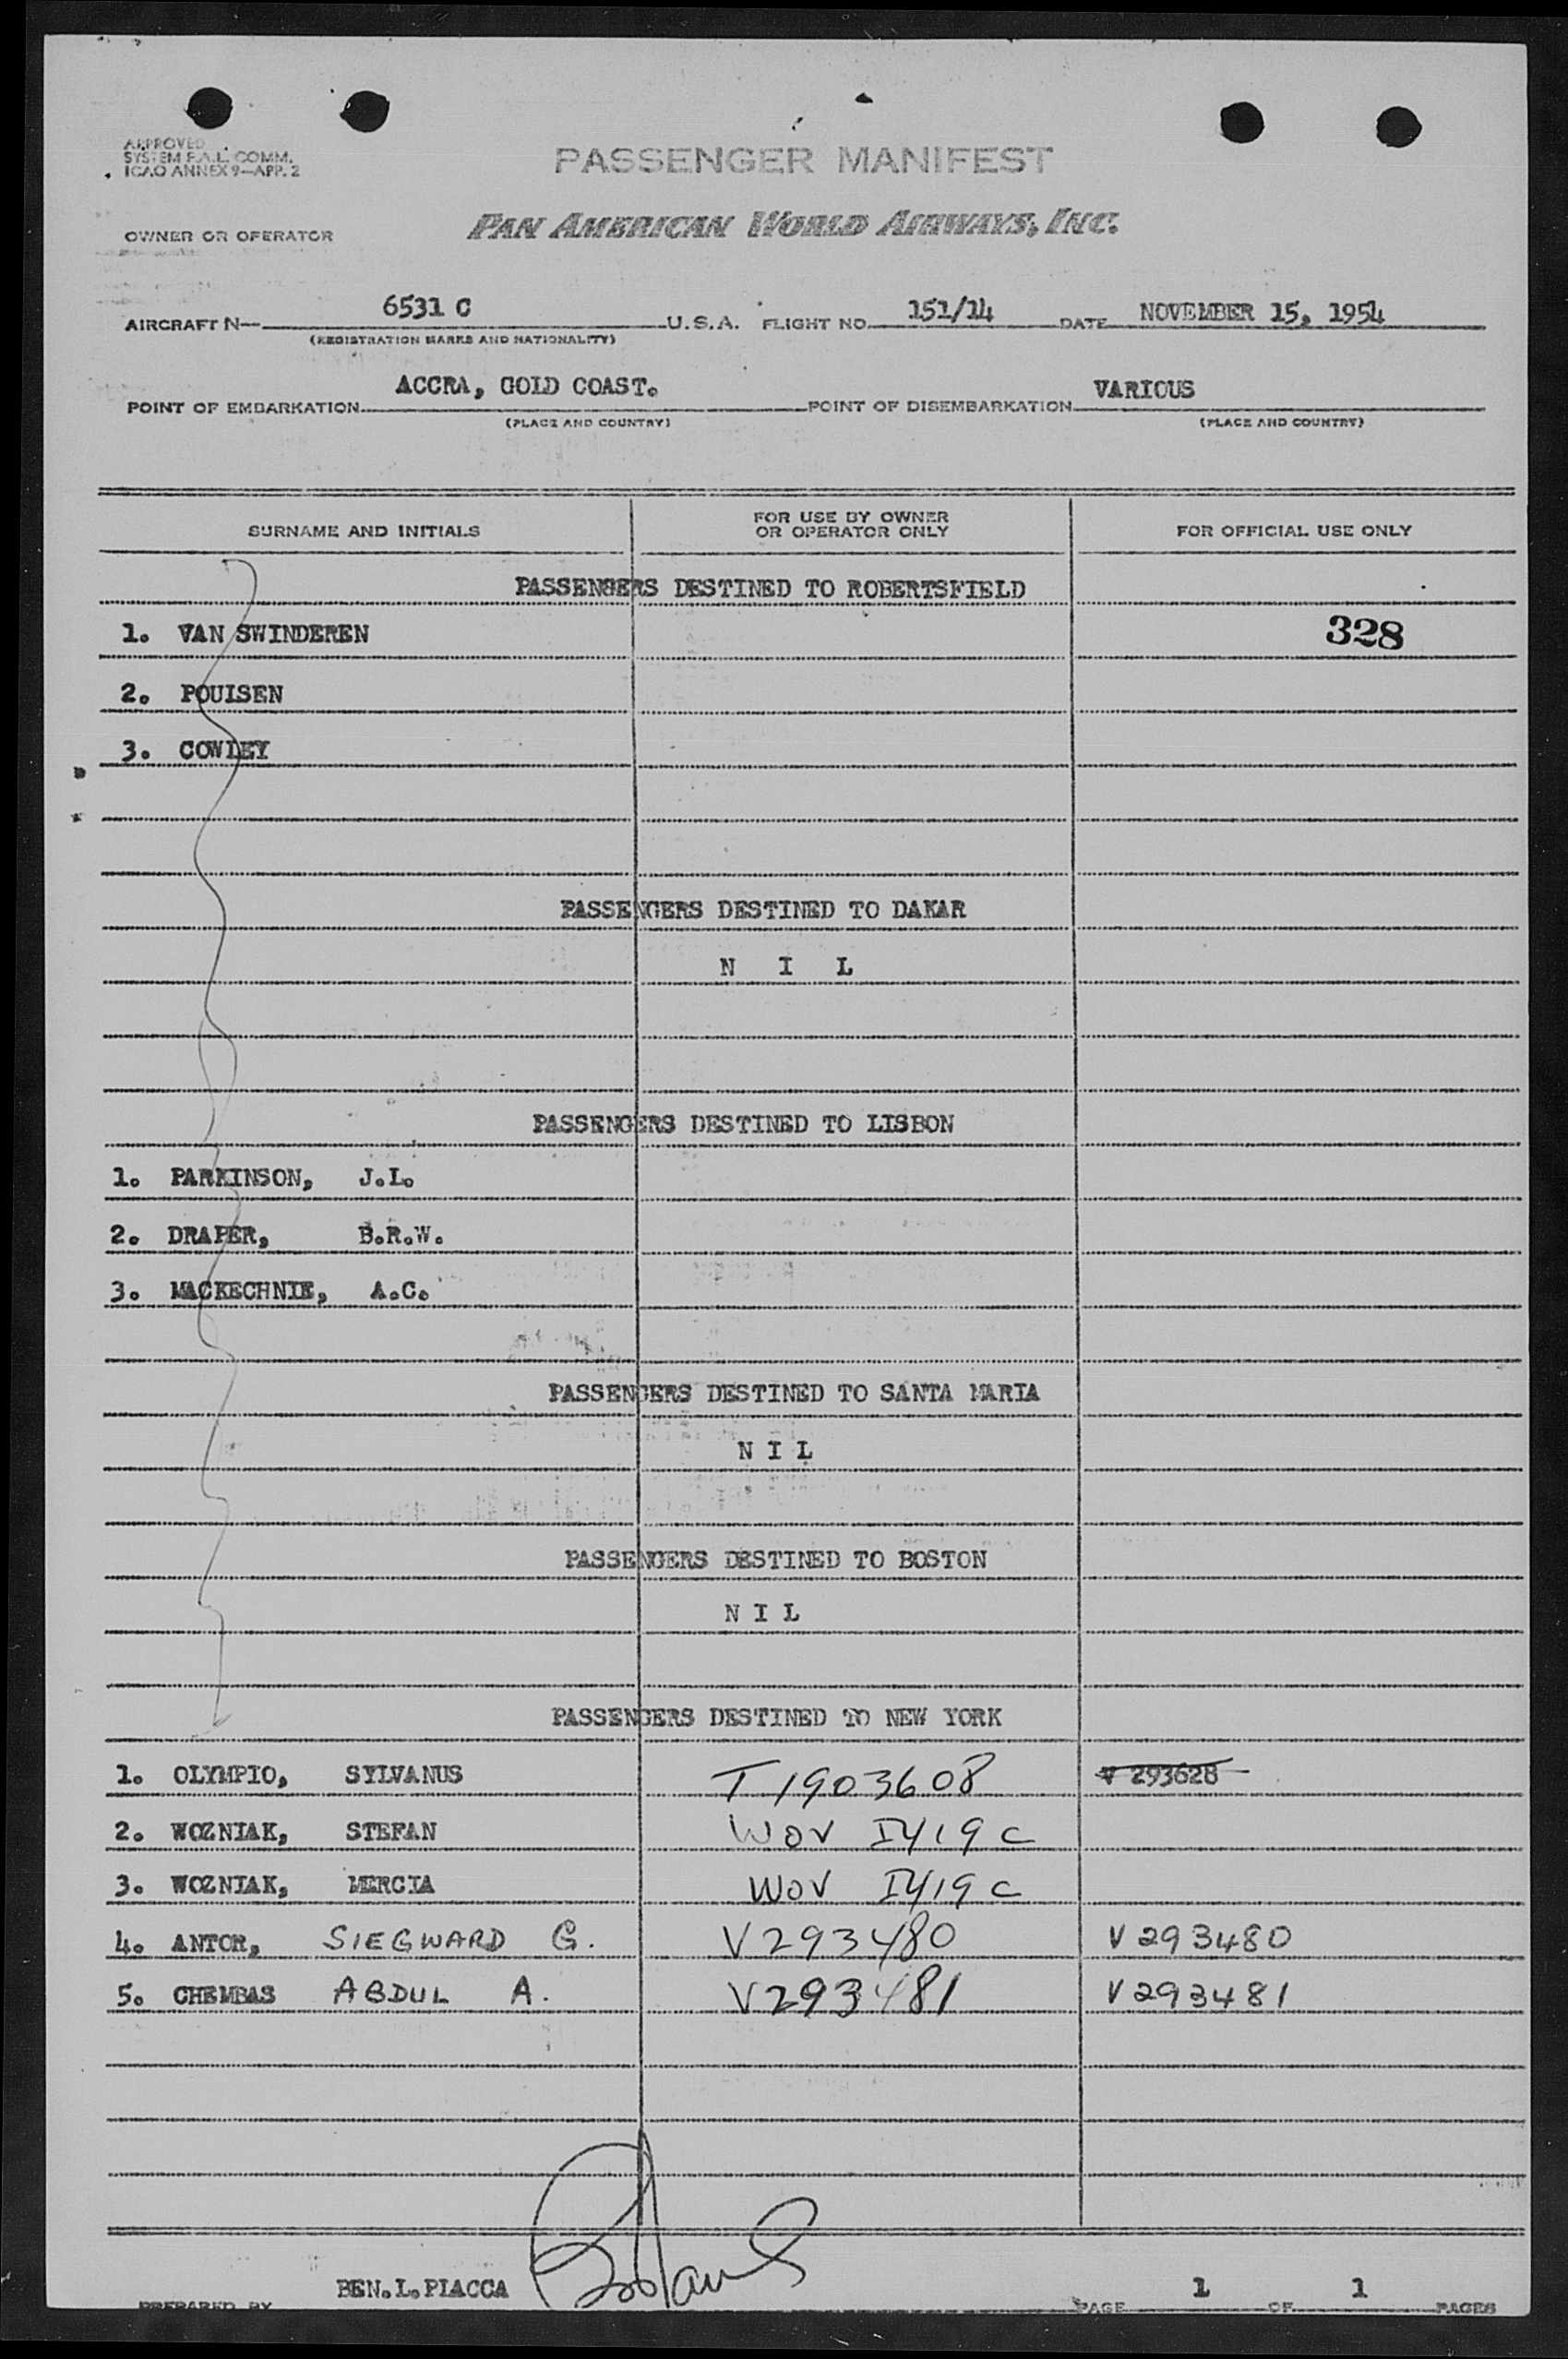 APPROVED
SYSTEM F.A.L. COMM.
ICAO ANNEX 9—APP. 2
PASSENGER MANIFEST
OWNER OR OPERATOR
PAN AMERICAN WORLD AIRWAYS, INC.
AIRCRAFT N— 6531 C U.S.A. FLIGHT NO. 151/14 DATE NOVEMBER 15, 1954
(REGISTRATION MARKS AND NATIONALITY)
POINT OF EMBARKATION ACCRA, GOLD COAST. POINT OF DISEMBARKATION VARIOUS
(PLACE AND COUNTRY) (PLACE AND COUNTRY)
SURNAME AND INITIALS FOR USE BY OWNER OR OPERATOR ONLY FOR OFFICIAL USE ONLY
PASSENGERS DESTINED TO ROBERTSFIELD
1. VAN SWINDEREN 328
2. POUISEN
3. COWLEY
PASSENGERS DESTINED TO DAKAR
N I L
PASSENGERS DESTINED TO LISBON
1. PARKINSON, J.L.
2. DRAPER, B.R.W.
3. MACKECHNIE, A.C.
PASSENGERS DESTINED TO SANTA MARIA
N I L
PASSENGERS DESTINED TO BOSTON
N I L
PASSENGERS DESTINED TO NEW YORK
1. OLYMPIO, SYLVANUS T 1903608 V 293628
2. WOZNIAK, STEFAN WOV I419 C
3. WOZNIAK, MERCIA WOV I419 C
4. ANTOR, SIEGWARD G. V293480 V293480
5. CHEMBAS ABDUL A. V293481 V293481
BEN.L.PIACCA
PREPARED BY PAGE 1 OF 1 PAGES